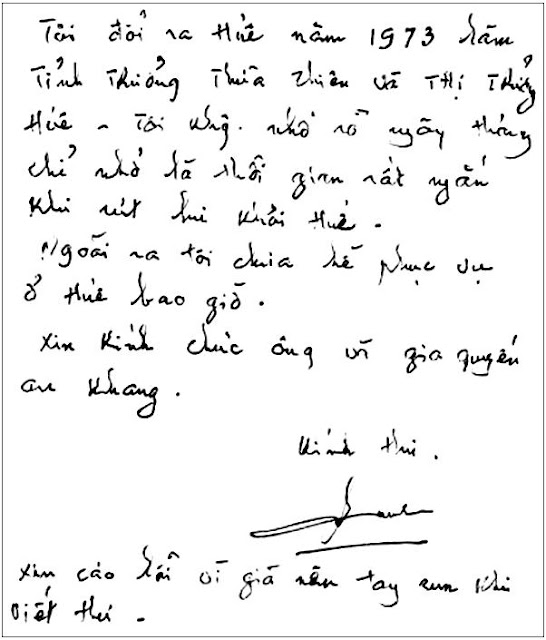 Tôi đổi ra Huế năm 1973 làm
Tỉnh Trưởng Thừa Thiên và Thị Trưởng
Huế - Tôi khg. nhớ rõ ngày tháng
chỉ nhớ là thời gian rất ngắn
khi rút lui khỏi Huế.
Ngoài ra tôi chưa hề phục vụ
ở Huế bao giờ.
Xin kính chúc ông và gia quyến
an khang.
Kính thư.
Xin cáo lỗi vì già nên tay run khi
viết thư.